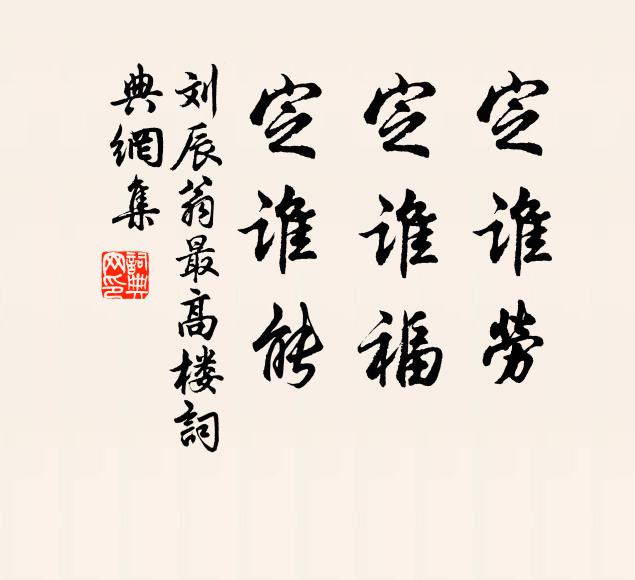 定谁劳
定谁福
定谁能
刘辰翁最高楼詞
典網集
詞典
网印